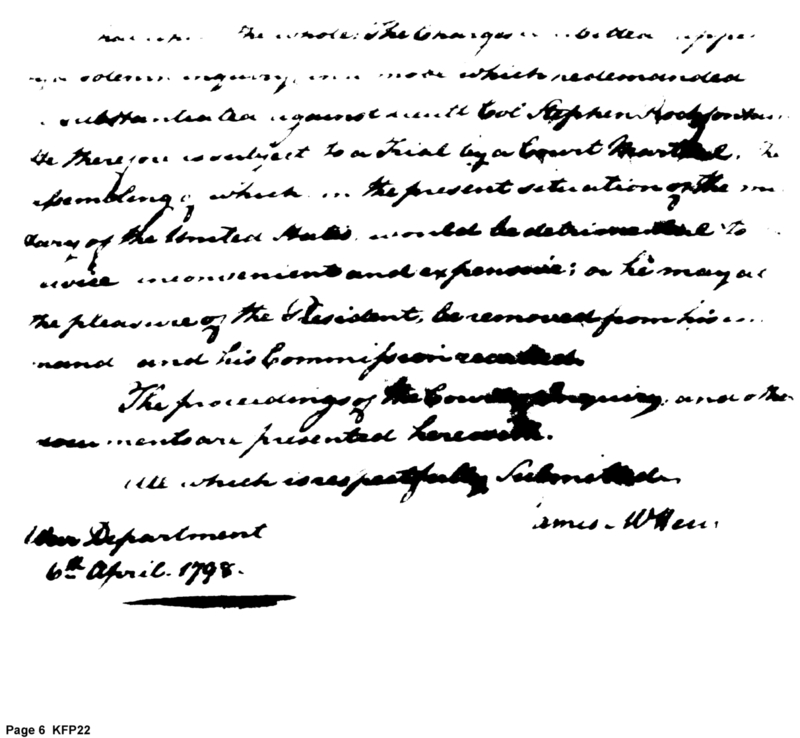 the whole. The Charges
solemn inquiry, in a mode which he demanded
substantiated against Lieutt Colo Stephen Rochfontain
He therefore is subject to a Trial by a Court Martial, the
assembling of which in the present situation of the mi
tary of the United States would be detrimental to
service inconvenient and expensive; or he may at
the pleasure of the President, be removed from his
mand and his Commission
The proceedings of the Court of Inquiry, and other
documents are presented herewith.
All which is respectfully Submitted
James McHen
War Department
6th April. 1798.
Page 6 KFP22